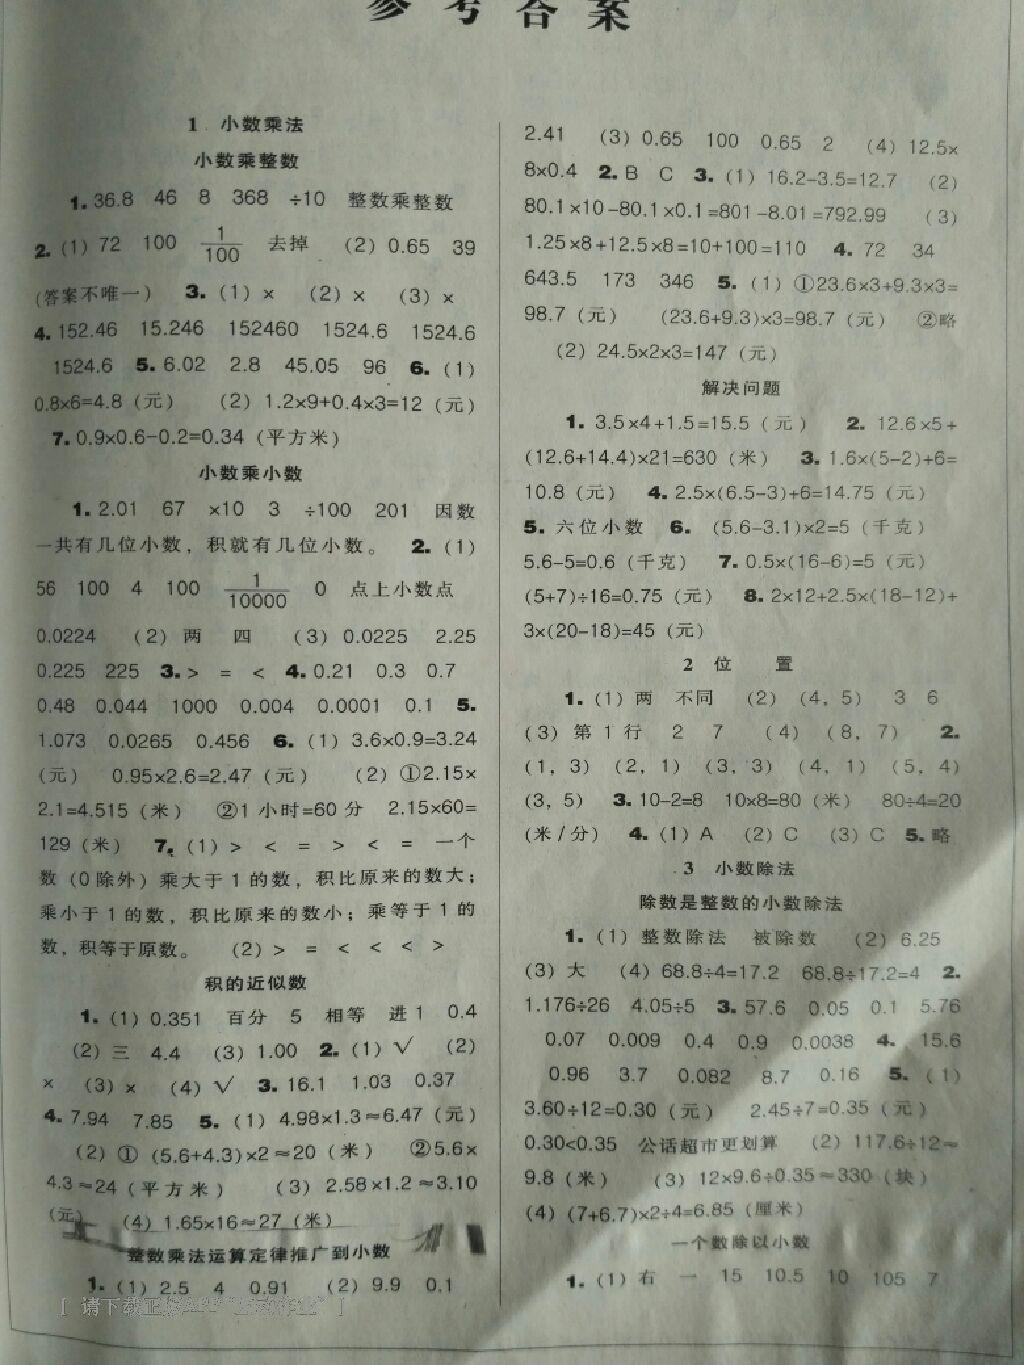 参考答案
1 小数乘法
小数乘整数
1. 36.8 46 8 368 ÷10 整数乘整数
2. (1) 72 100 1/100 去掉 (2) 0.65 39
(答案不唯一) 3. (1) × (2) × (3) ×
4. 152.46 15.246 152460 1524.6 1524.6
1524.6 5. 6.02 2.8 45.05 96 6. (1)
0.8×6=4.8 (元) (2) 1.2×9+0.4×3=12 (元)
7. 0.9×0.6-0.2=0.34 (平方米)
小数乘小数
1. 2.01 67 ×10 3 ÷100 201 因数
一共有几位小数，积就有几位小数。 2. (1)
56 100 4 100 1/10000 0 点上小数点
0.0224 (2) 两 四 (3) 0.0225 2.25
0.225 225 3. > = < 4. 0.21 0.3 0.7
0.48 0.044 1000 0.004 0.0001 0.1 5.
1.073 0.0265 0.456 6. (1) 3.6×0.9=3.24
(元) 0.95×2.6=2.47 (元) (2) ①2.15×
2.1=4.515 (米) ②1小时=60分 2.15×60=
129 (米) 7. (1) > < = > < = 一个
数 (0除外) 乘大于1的数，积比原来的数大；
乘小于1的数，积比原来的数小；乘等于1的
数，积等于原数。 (2) > = < < < >
积的近似数
1. (1) 0.351 百分 5 相等 进1 0.4
(2) 三 4.4 (3) 1.00 2. (1) √ (2)
× (3) × (4) √ 3. 16.1 1.03 0.37
4. 7.94 7.85 5. (1) 4.98×1.3≈6.47 (元)
(2) ① (5.6+4.3)×2≈20 (米) ②5.6×
4.3≈24 (平方米) (3) 2.58×1.2≈3.10
(元) (4) 1.65×16≈27 (米)
整数乘法运算定律推广到小数
1. (1) 2.5 4 0.91 (2) 9.9 0.1
2.41 (3) 0.65 100 0.65 2 (4) 12.5×
8×0.4 2. B C 3. (1) 16.2-3.5=12.7 (2)
80.1×10-80.1×0.1=801-8.01=792.99 (3)
1.25×8+12.5×8=10+100=110 4. 72 34
643.5 173 346 5. (1) ①23.6×3+9.3×3=
98.7 (元) (23.6+9.3)×3=98.7 (元) ②略
(2) 24.5×2×3=147 (元)
解决问题
1. 3.5×4+1.5=15.5 (元) 2. 12.6×5+
(12.6+14.4)×21=630 (米) 3. 1.6×(5-2)+6=
10.8 (元) 4. 2.5×(6.5-3)+6=14.75 (元)
5. 六位小数 6. (5.6-3.1)×2=5 (千克)
5.6-5=0.6 (千克) 7. 0.5×(16-6)=5 (元)
(5+7)÷16=0.75 (元) 8. 2×12+2.5×(18-12)+
3×(20-18)=45 (元)
2 位 置
1. (1) 两 不同 (2) (4，5) 3 6
(3) 第1行 2 7 (4) (8，7) 2.
(1，3) (2，1) (3，3) (4，1) (5，4)
(3，5) 3. 10-2=8 10×8=80 (米) 80÷4=20
(米/分) 4. (1) A (2) C (3) C 5. 略
3 小数除法
除数是整数的小数除法
1. (1) 整数除法 被除数 (2) 6.25
(3) 大 (4) 68.8÷4=17.2 68.8÷17.2=4 2.
1.176÷26 4.05÷5 3. 57.6 0.05 0.1 5.76
0.07 0.009 0.4 0.9 0.0038 4. 15.6
0.96 3.7 0.082 8.7 0.16 5. (1)
3.60÷12=0.30 (元) 2.45÷7=0.35 (元)
0.30<0.35 公话超市更划算 (2) 117.6÷12≈
9.8 (米) (3) 12×9.6÷0.35≈330 (块)
(4) (7+6.7)×2÷4=6.85 (厘米)
一个数除以小数
1. (1) 右 一 15 10.5 10 105 7
[ 请下载正